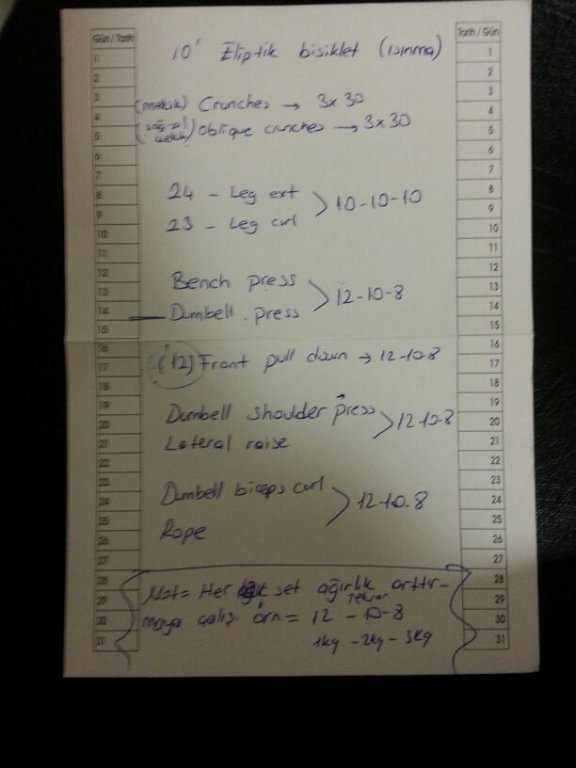 Gün / Tarih
Tarih / Gün
10' Eliptik bisiklet (ısınma)
(mekik) Crunches → 3x30
(sağ-sol mekik) Oblique crunches → 3x30
24 - Leg ext
23 - Leg curl
10-10-10
Bench press
Dumbell press
12-10-8
(12) Front pull down → 12-10-8
Dumbell shoulder press
Lateral raise
12-10-8
Dumbell biceps curl
Rope
12-10-8
Not= Her set ağırlık arttır-
maya çalış örn= 12 - 10 - 8
Tekrar
1kg - 2kg - 3kg
1
2
3
4
5
6
7
8
9
10
11
12
13
14
15
16
17
18
19
20
21
22
23
24
25
26
27
28
29
30
31
1
2
3
4
5
6
7
8
9
10
11
12
13
14
15
16
17
18
19
20
21
22
23
24
25
26
27
28
29
30
31